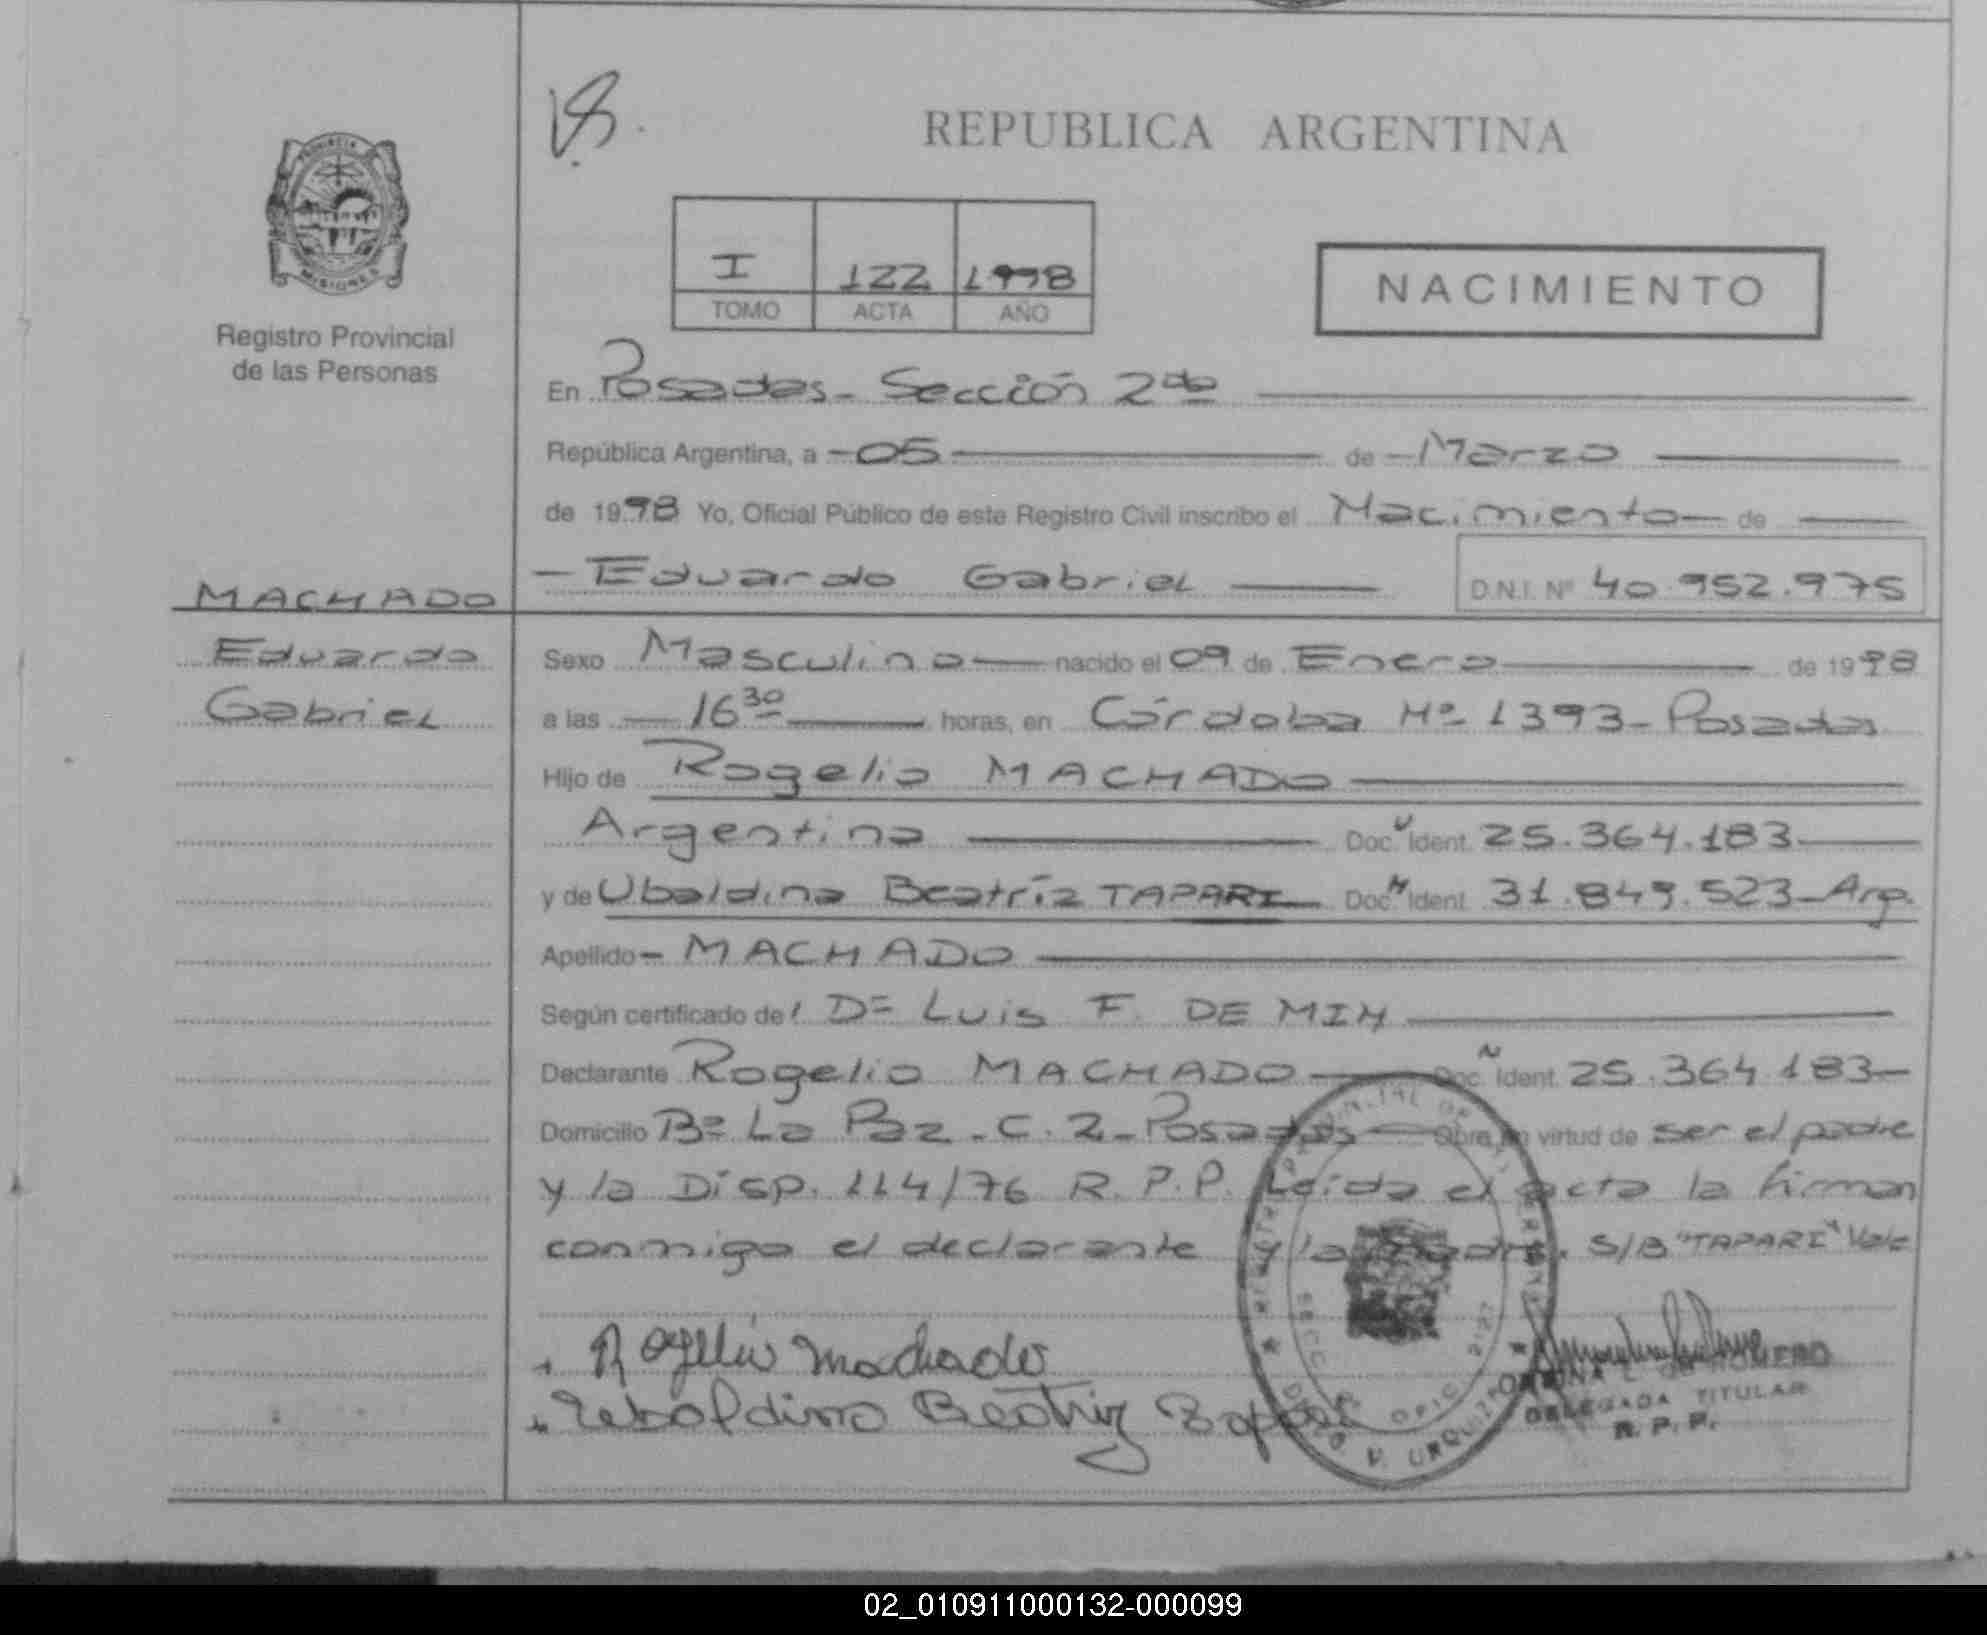 REPUBLICA ARGENTINA
PROVINCIA DE
MISIONES
Registro Provincial
de las Personas
I 122 1998
TOMO ACTA AÑO
NACIMIENTO
En Posadas - Sección 2da
República Argentina, a - 05 de - Marzo
de 1998 Yo, Oficial Público de este Registro Civil inscribo el Nacimiento de
- Eduardo Gabriel D.N.I. Nº 40.952.975
MACHADO
Eduardo
Gabriel
Sexo Masculino nacido el 09 de Enero de 1998
a las 16 30 horas, en Córdoba Nº 1393 - Posadas
Hijo de Rogelio MACHADO
Argentino Doc. Ident. 25.364.183
y de Ubaldina Beatríz TAPARI Doc. N Ident. 31.849.523 - Arg.
Apellido - MACHADO
Según certificado del Dr Luis F. DE MIN
Declarante Rogelio MACHADO Doc. N Ident. 25.364.183 -
Domicilio Bº La Paz - C. 2 - Posadas Obra en virtud de ser el padre
y la Disp. 114/76 R.P.P. Leída el acta la firman
conmigo el declarante y la madre. S/B "TAPARI" Vale
Rogelio Machado
DELEGADA TITULAR
R. P. P.
02_010911000132-000099